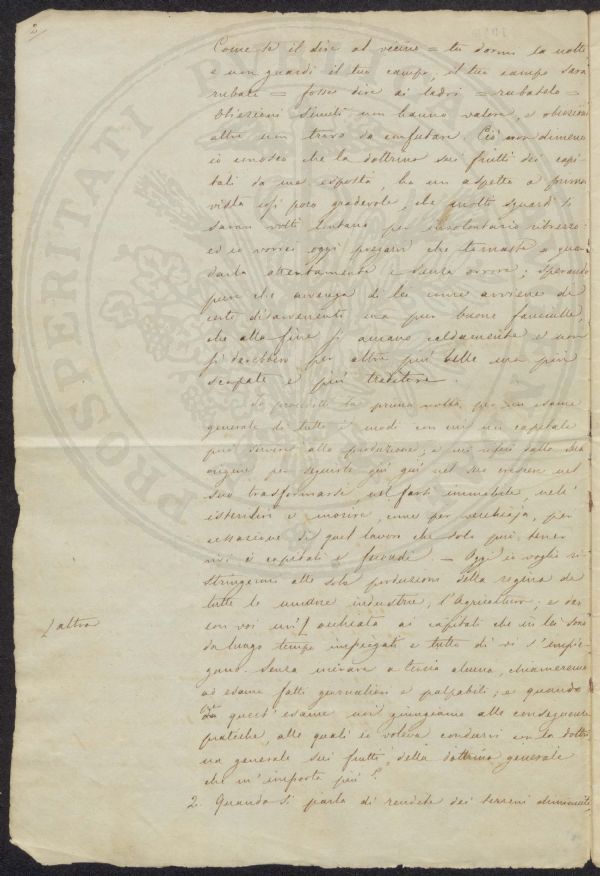 2
Come se il dire al vicino = tu dormi la notte
e non guardi il tuo campo, il tuo campo sarà
rubato = fosse dire ai ladri = rubatelo =
Obiezioni simili non hanno valore, e obiezioni
altre non trovo da confutare. Ciò non dimeno
io conosco che la dottrina sui frutti dei capi-
tali da me esposta, ha un aspetto a prima
vista così poco gradevole, che molti sguardi si
saran volti lontano per involontario ribrezzo:
ed io vorrei oggi pregarvi che tornaste a guar-
darla attentamente e senza orrore; sperando
pure che avvenga di lei come avviene di
certe disavvenenti ma pur buone fanciulle,
che alla fine si amano caldamente e non
si darebbero per altre più belle ma più
scapate e più traditore.
Io procedetti la prima volta per un esame
generale di tutti i modi con cui un capitale
può servire alla produzione; e mi rifeci dalla sua
origine per seguirlo giù giù nel suo crescere nel
suo trasformarsi, nel farsi immobile, nell'
isterilirsi e morire, come per vecchiaja, per
cessazione di quel lavoro che solo può tener
vivi i capitali e fecondi. — Oggi io voglio ri-
stringermi alla sola produzione della regina di
tutte le umane industrie, l'Agricoltura; e dar
con voi un' occhiata ai capitali che in lei sono
l'altra
da lungo tempo impiegati e tutto dì vi s'impie-
gano. Senza mirare a teoria alcuna, chiameremo
ad esame fatti giornalieri e palpabili; e quando
da quest' esame noi giungiamo alle conseguenze
pratiche, alle quali io voleva condurvi con la dottri-
na generale sui frutti, della dottrina generale
che m' importa più?
2. Quando si parla di rendite dei terreni